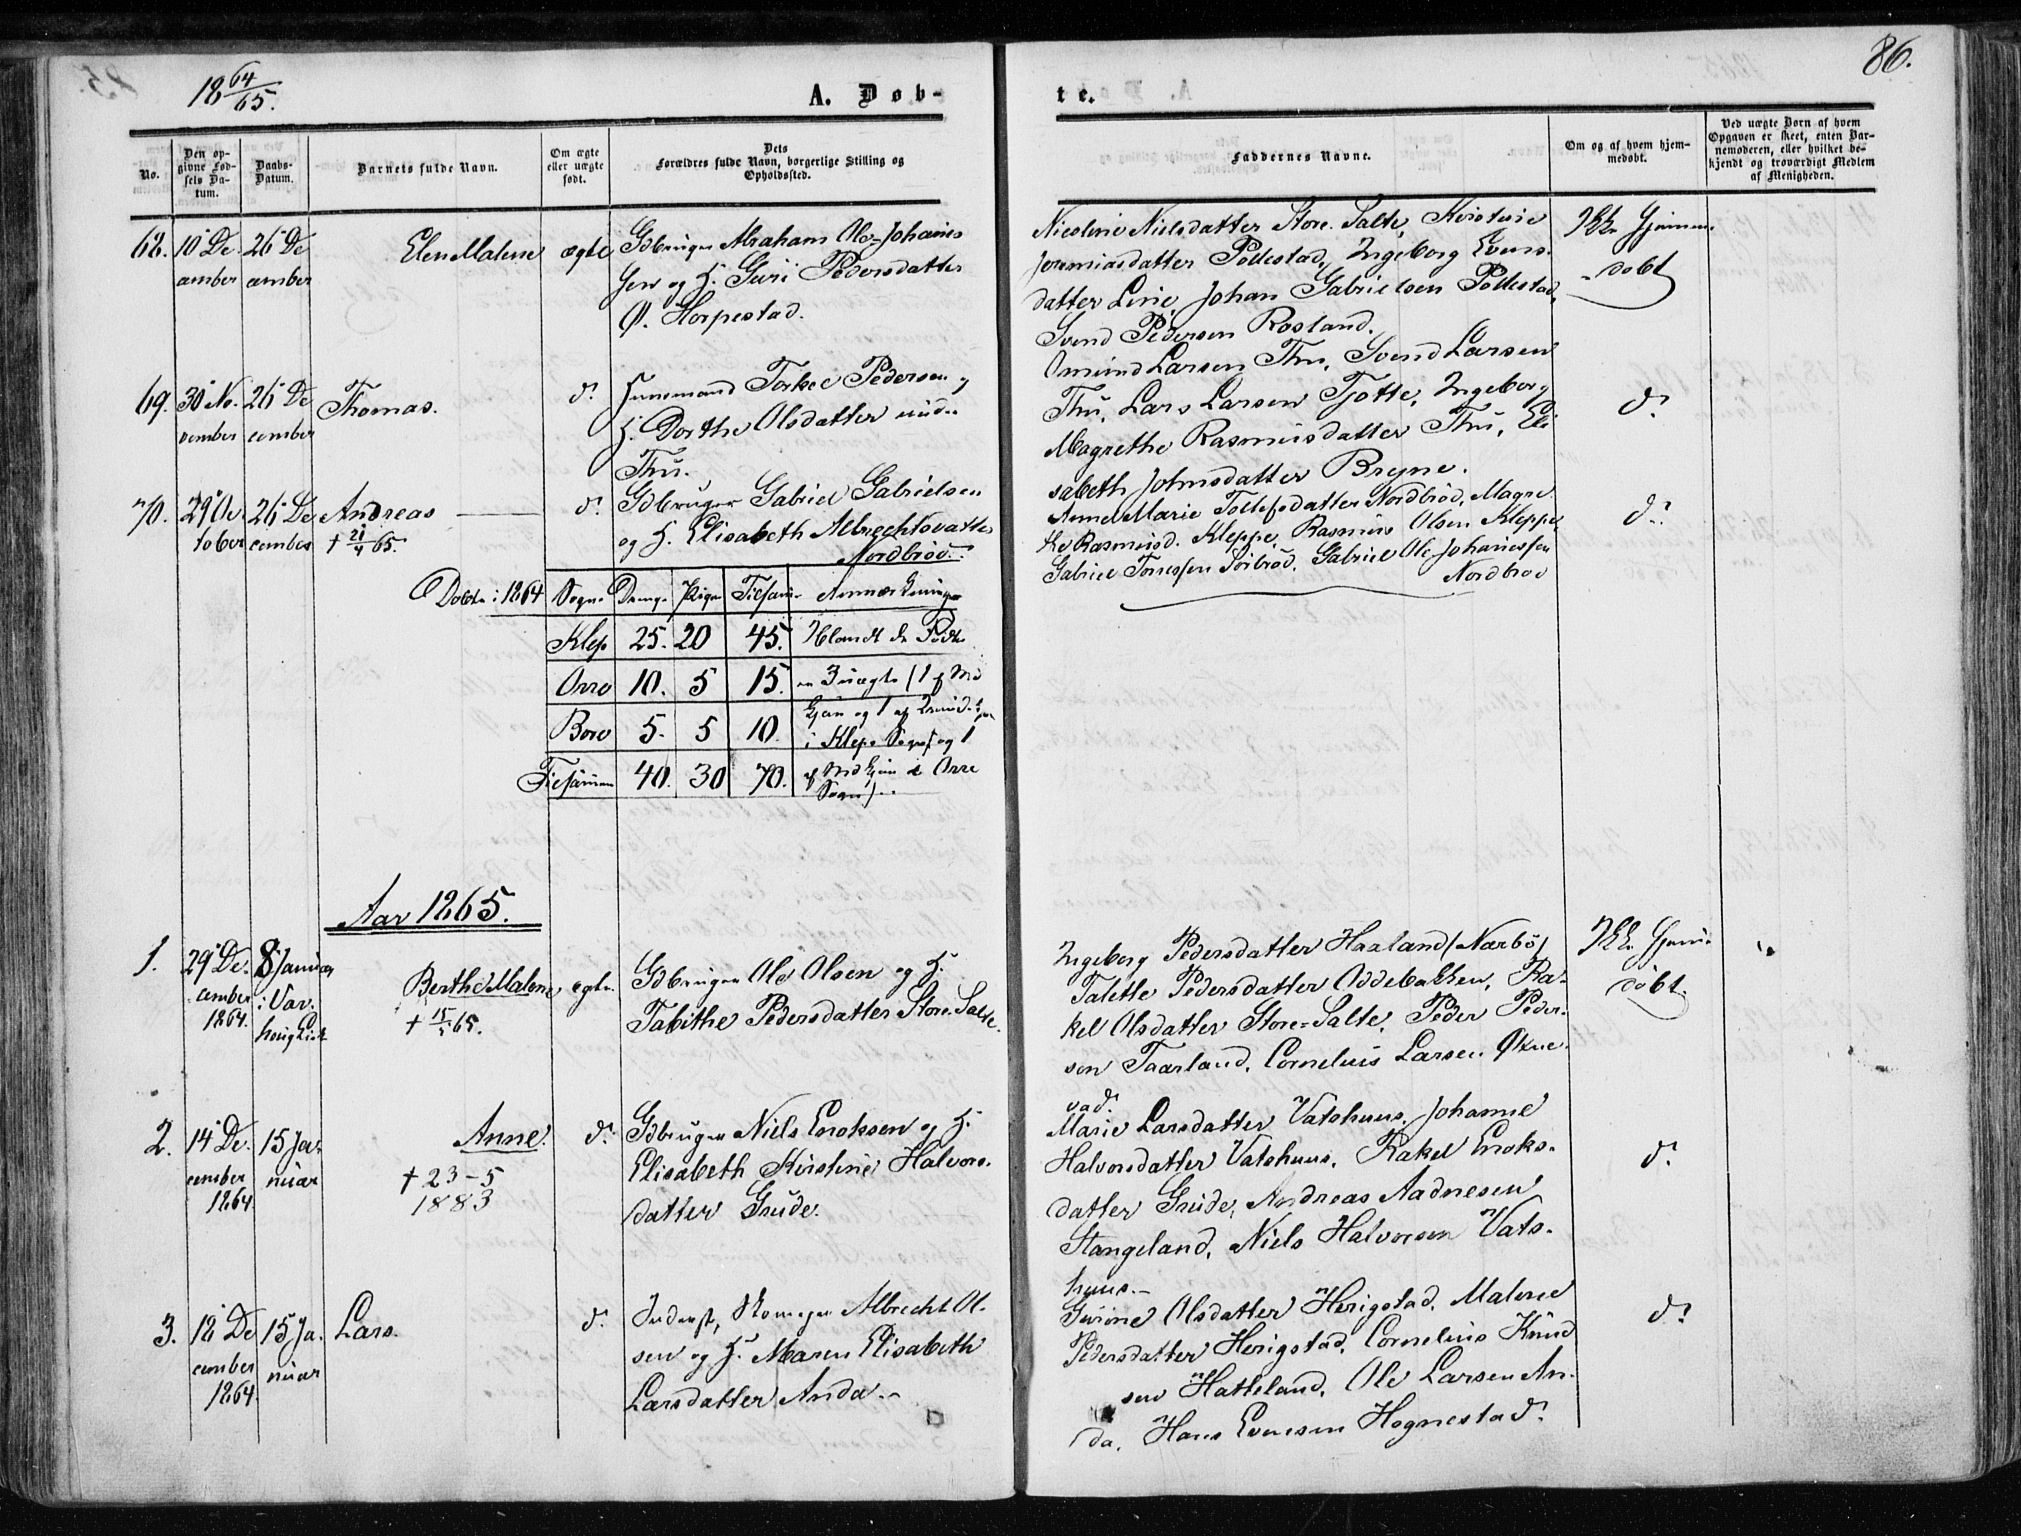 18 64/65.
A. Døb-
te.
86.
No.
Den op-
givne Fød-
sels Da-
tum.
Daabs-
Datum.
Barnets fulde Navn.
Om ægte
eller uægte
født.
Dets
Forældres fulde Navn, borgerlige Stilling og
Opholdssted.
Faddernes Navne.
Om og af hvem hjem-
medøbt.
Ved uægte Børn af hvem
Opgaven er skeet, enten Bar-
nemoderen, eller hvilket be-
kjendt og troværdigt Medlem
af Menigheden.
68. 10 De
cember
26 De
cember
Elen Malene ægte
Gdbruger Abraham Ole-Johannes
sen og H. Guri Pedersdatter
Ø. Horpestad.
Nicoline Nielsdatter Store-Salte, Kirstine
Jeremiasdatter Pollestad, Ingeborg Evens-
datter Line, Johan Gabrielsen Pollestad,
Svend Pedersen Rosland.
Ikke Hjemme-
døbt
69. 30 No-
vember
26 De
cember
Thomas. do
Huusmand Torkel Pedersen og
H. Dorthe Olsdatter under
Thu.
Omund Larsen Thu, Svend Larsen
Thu, Lars Larsen Tjøtte, Ingeborg
Magrethe Rasmusdatter Thu, Eli
sabeth Johnsdatter Bryne.
do
70. 29 Oc
tober
26 De
cember
Andreas
† 21/4 65.
do
Gdbruger Gabriel Gabrielsen
og H. Elisabeth Albrechtsdatter
Nordbrød.
Anne Marie Tollefsdatter Nordbrød, Magre
the Rasmusd. Kleppe, Rasmus Olsen Kleppe,
Gabriel Tørresen Sørbrød, Gabriel Ole Johannessen
Nordbrød
do
Døbte i 1864 Sogne Drenge Piger Tilsam- Anmærkninger
Klep 25. 20 45. Iblandt de Fødte
Orre 10. 5 15. er 3 uægte (1 af
Bore 5. 5 10. og 1 af
i Klep Sogn og 1
Tilsammen 40. 30 70. af i Orre
Sogn)
Aar 1865.
1. 29 De-
cember
1864.
8 Januar
i Var-
houg Kirke
Berthe Malene ægte
† 15/5 65.
Gdbruger Ole Olsen og H.
Tabithe Pedersdatter Store-Salte.
Ingeborg Pedersdatter Haaland (Nærbø)
Talette Pedersdatter Oddebakken, Ra-
kel Olsdatter Store-Salte, Peder Peder-
sen Taarland, Cornelius Larsen Qvne-
vad.
Ikke Hjemme-
døbt.
2. 14 De-
cember
1864.
15 Ja-
nuar
Anne. do
† 23-5
1883
Gdbruger Niels Enoksen og H.
Elisabeth Kirstine Halvors-
datter Grude.
Marie Larsdatter Vatshuus, Johanne
Halvorsdatter Vatshuus, Rakel Enoks-
datter Grude, Andreas Aadnesen
Stangeland, Niels Halvorsen Vats-
huus.
do
3. 12 De
cember
1864.
15 Ja-
nuar
Lars. do
Inderst, Skomager Albrecht Ol-
sen og H. Maren Elisabeth
Larsdatter Anda.
Gurine Olsdatter Herigstad, Malene
Pedersdatter Herigstad, Cornelius Knud
sen Hatteland, Ole Larsen An-
da, Hans Evensen Hognestad.
do